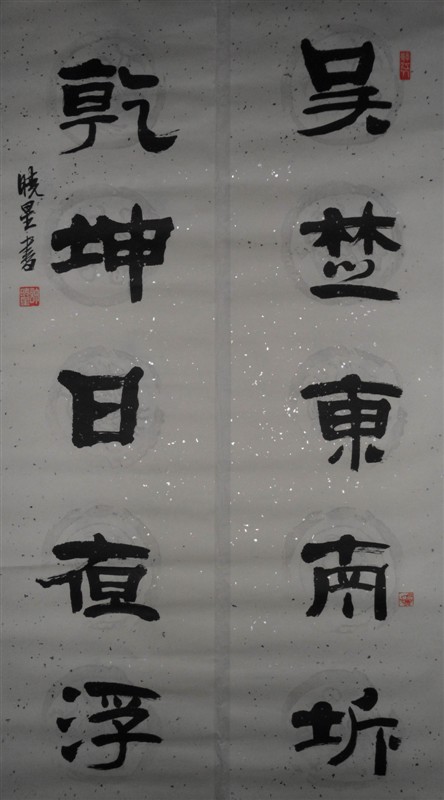 吴楚東南坼
乾坤日夜浮
曉星書